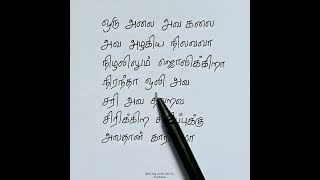 ஒரு அலை அவ கலை
அவ அழகிய நிலவலா
நிழலிலும் ஜொலிக்கிறா
நிரந்தர ஒலி அவ
சரி அவ தவறவ
சிரிக்கிற
அவதான்